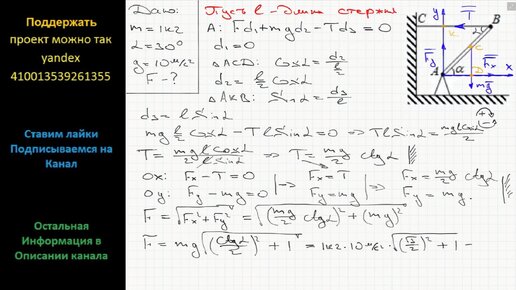 Поддержать
проект можно так
yandex
410013539261355
Ставим лайки
Подписываемся на
Канал
Остальная
Информация в
Описании канала
Дано:
m = 1кг
α = 30°
g = 10 м/с²
F - ?
Пусть l - длина стержня
A: Fd₁ + mgd₂ - Td₃ = 0
d₁ = 0
△ACD: cosα = d₂/(l/2)
d₂ = l/2 cosα
△AKB: sinα = d₃/l
d₃ = l sinα
mg l/2 cosα - Tl sinα = 0 => Tl sinα = mgl cosα/2
T = mgl cosα/(2l sinα) => T = mg/2 ctgα
ox: Fₓ - T = 0 => Fₓ = T => Fₓ = mg/2 ctgα
oy: F_y - mg = 0 => F_y = mg => F_y = mg.
F = √(Fₓ² + F_y²) = √((mg/2 ctgα)² + (mg)²)
F = mg√((ctgα/2)² + 1) = 1кг·10 м/с²·√((√3/2)² + 1) =
C
y
T
B
α
K
F_y
F
C
Fₓ
A
α
D
x
mg